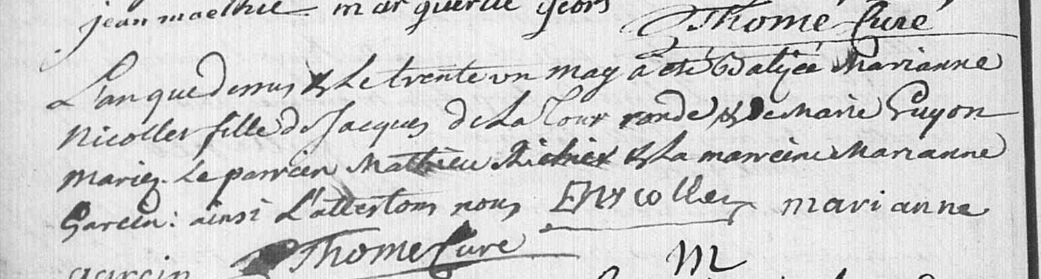 jean maethie marguerite
Thomé Curé
L'an que dessus & Le trente un may a été Batisée Marianne
Nicollet fille de Jacques de La Tour ronde & de Marie Guyon
mariez. Le parrein Mathieu & La marreine Marianne
Garcin: ainsi L'attestons nous ENicollet marianne
garcin Thomé Curé M